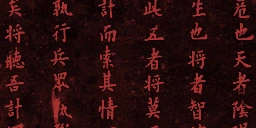 危也天者陰
生也將者智
此五者將莫
計而索其情
孰行兵眾孰
矣將聽吾計